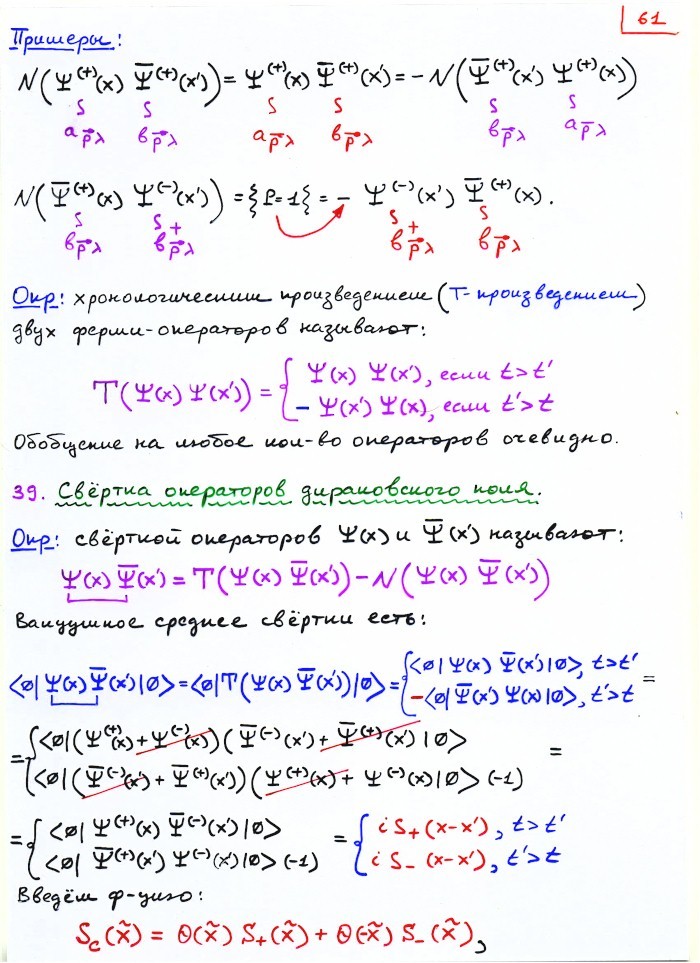 61
Примеры:
N(Ψ⁽⁺⁾(x) Ψ̄⁽⁺⁾(x')) = Ψ⁽⁺⁾(x) Ψ̄⁽⁺⁾(x') = - N(Ψ̄⁽⁺⁾(x') Ψ⁽⁺⁾(x))
s s s s s s
a p⃗ λ b p⃗ λ a p⃗ λ b p⃗ λ b p⃗ λ a p⃗ λ
N(Ψ̄⁽⁺⁾(x) Ψ⁽⁻⁾(x')) = {P=1} = - Ψ⁽⁻⁾(x') Ψ̄⁽⁺⁾(x).
s s s s
b p⃗ λ b⁺ p⃗ λ b⁺ p⃗ λ b p⃗ λ
Опр: хронологическим произведением (T-произведением)
двух ферми-операторов называют:
T(Ψ(x) Ψ(x')) = { Ψ(x) Ψ(x'), если t>t'
- Ψ(x') Ψ(x), если t'>t
Обобщение на любое кол-во операторов очевидно.
39. Свёртка операторов дираковского поля.
Опр: свёрткой операторов Ψ(x) и Ψ̄(x') называют:
Ψ(x) Ψ̄(x') = T(Ψ(x) Ψ̄(x')) - N(Ψ(x) Ψ̄(x'))
Вакуумное среднее свёртки есть:
<0| Ψ(x) Ψ̄(x') |0> = <0|T(Ψ(x) Ψ̄(x'))|0> = { <0| Ψ(x) Ψ̄(x') |0>, t>t' =
-<0| Ψ̄(x') Ψ(x) |0>, t'>t
= { <0|(Ψ⁽⁺⁾(x) + Ψ⁽⁻⁾(x)) (Ψ̄⁽⁻⁾(x') + Ψ̄⁽⁺⁾(x') |0> =
<0|(Ψ̄⁽⁻⁾(x') + Ψ̄⁽⁺⁾(x')) (Ψ⁽⁺⁾(x) + Ψ⁽⁻⁾(x) |0> (-1)
= { <0| Ψ⁽⁺⁾(x) Ψ̄⁽⁻⁾(x') |0> = { i S₊(x-x'), t>t'
<0| Ψ̄⁽⁺⁾(x') Ψ⁽⁻⁾(x') |0> (-1) i S₋(x-x'), t'>t
Введём ф-цию:
S_c(x̃) = Θ(x̃) S₊(x̃) + Θ(-x̃) S₋(x̃),